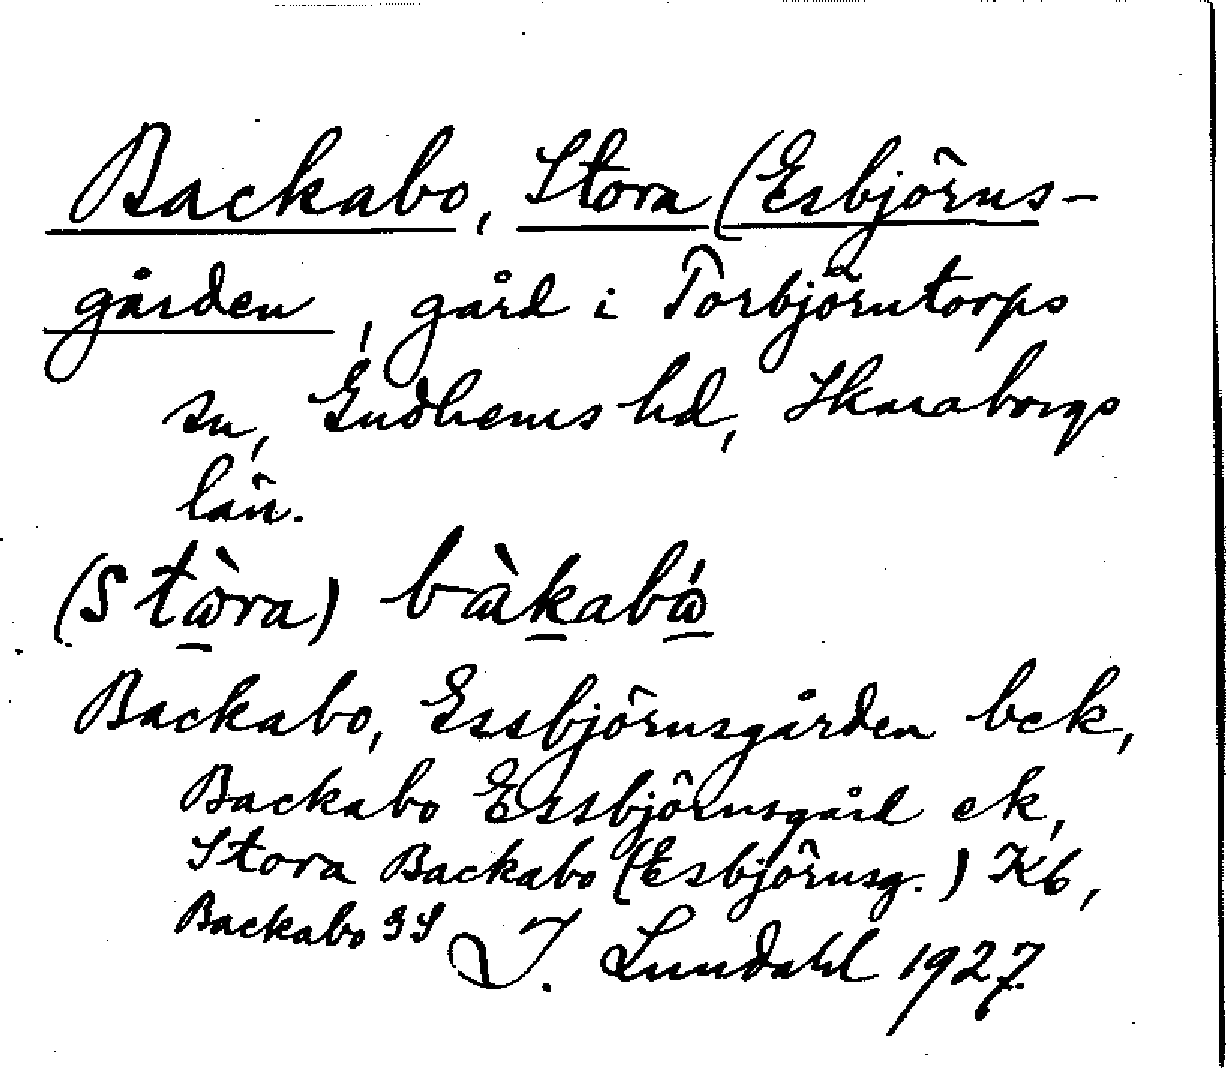 Backabo, Stora (Esbjörns-
gården, gård i Torbjörntorps
sn, Gudhems hd, Skaraborgs
län.
(Stωra) bàkabω
Backabo, Essbjörnsgården bck,
Backabo Essbjörnsgård ek,
Stora Backabo (Esbjörnsg.) Kb,
Backabo GS
I. Lundahl 1927.